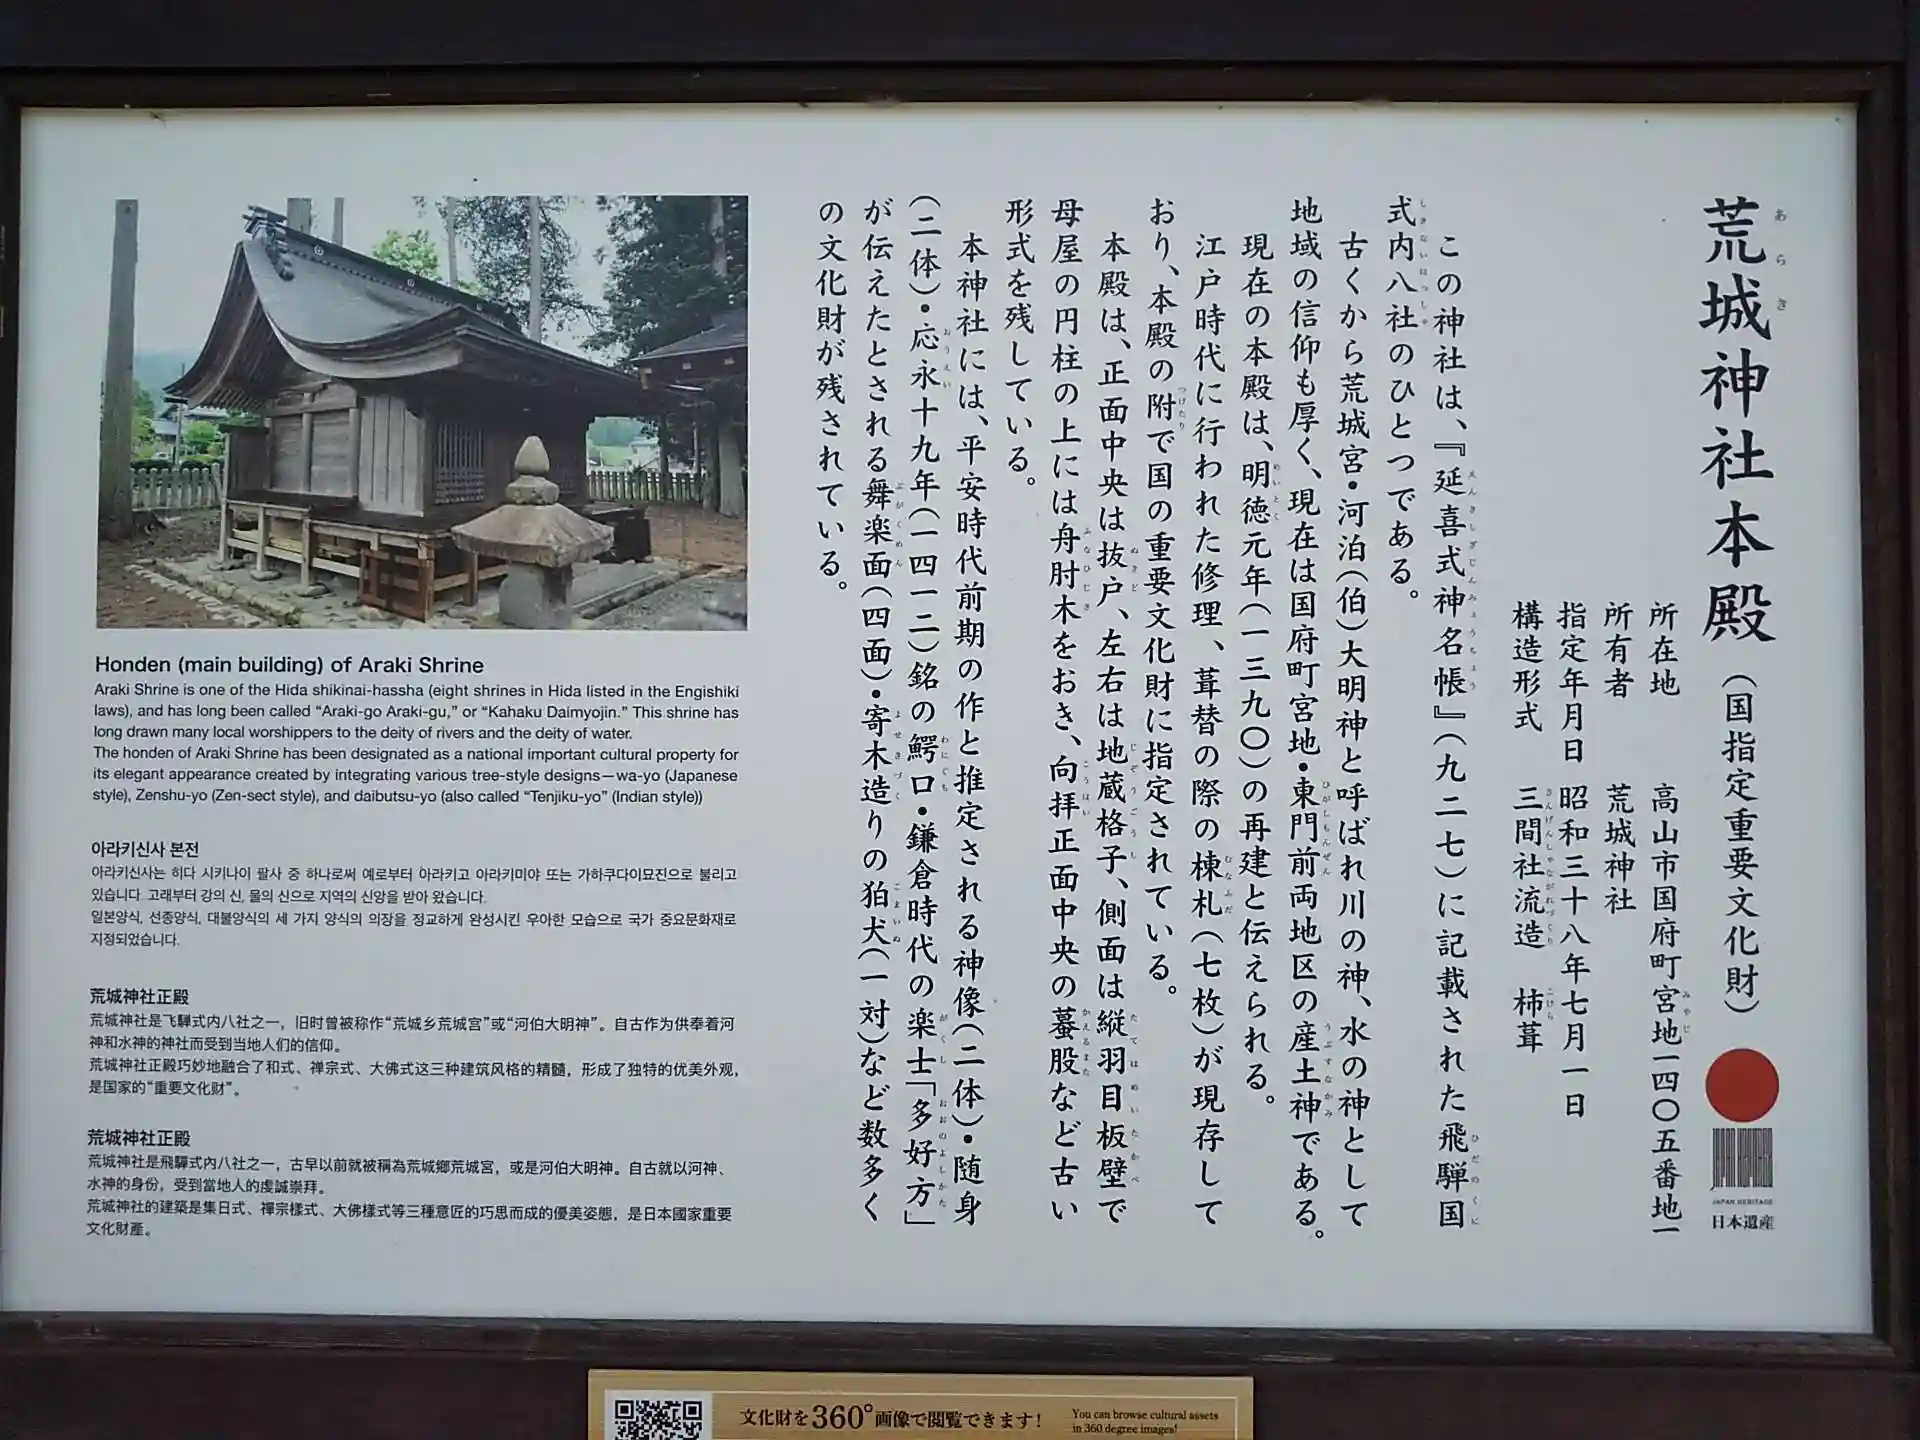 荒城神社本殿(国指定重要文化財)
あらき
所在地 高山市国府町宮地一四〇五番地一
みやじ
所有者 荒城神社
指定年月日 昭和三十八年七月一日
構造形式 三間社流造 杮葺
さんげんしゃながれづくり こけら
この神社は、『延喜式神名帳』(九二七)に記載された飛騨国
えんぎしきじんみょうちょう ひだのくに
式内八社のひとつである。
しきないはっしゃ
古くから荒城宮・河泊(伯)大明神と呼ばれ川の神、水の神として
地域の信仰も厚く、現在は国府町宮地・東門前両地区の産土神である。
ひがしもんぜん うぶすながみ
現在の本殿は、明徳元年(一三九〇)の再建と伝えられる。
めいとく
江戸時代に行われた修理、葺替の際の棟札(七枚)が現存して
むなふだ
おり、本殿の附で国の重要文化財に指定されている。
つけたり
本殿は、正面中央は抜戸、左右は地蔵格子、側面は縦羽目板壁で
ぬきど じぞうごうし たてはめいたかべ
母屋の円柱の上には舟肘木をおき、向拝正面中央の蟇股など古い
ふなひじき こうはい かえるまた
形式を残している。
本神社には、平安時代前期の作と推定される神像(二体)・随身
(二体)・応永十九年(一四一二)銘の鰐口・鎌倉時代の楽士「多好方」
おうえい わにぐち がくし おおのよしかた
が伝えたとされる舞楽面(四面)・寄木造りの狛犬(一対)など数多く
ぶがくめん よせきづく こまいぬ
の文化財が残されている。
JAPAN HERITAGE
日本遺産
Honden (main building) of Araki Shrine
Araki Shrine is one of the Hida shikinai-hassha (eight shrines in Hida listed in the Engishiki
laws), and has long been called “Araki-go Araki-gu,” or “Kahaku Daimyojin.” This shrine has
long drawn many local worshippers to the deity of rivers and the deity of water.
The honden of Araki Shrine has been designated as a national important cultural property for
its elegant appearance created by integrating various tree-style designs—wa-yo (Japanese
style), Zenshu-yo (Zen-sect style), and daibutsu-yo (also called “Tenjiku-yo” (Indian style))
아라키신사 본전
아라키신사는 히다 시키나이 팔사 중 하나로써 예로부터 아라키고 아라키미야 또는 가하쿠다이묘진으로 불리고
있습니다. 고래부터 강의 신, 물의 신으로 지역의 신앙을 받아 왔습니다.
일본양식, 선종양식, 대불양식의 세 가지 양식의 의장을 정교하게 완성시킨 우아한 모습으로 국가 중요문화재로
지정되었습니다.
荒城神社正殿
荒城神社是飞騨式内八社之一，旧时曾被称作“荒城乡荒城宫”或“河伯大明神”。自古作为供奉着河
神和水神的神社而受到当地人们的信仰。
荒城神社正殿巧妙地融合了和式、禅宗式、大佛式这三种建筑风格的精髓，形成了独特的优美外观，
是国家的“重要文化财”。
荒城神社正殿
荒城神社是飛驒式內八社之一，古早以前就被稱為荒城鄉荒城宮，或是河伯大明神。自古就以河神、
水神的身份，受到當地人的虔誠崇拜。
荒城神社的建築是集日式、禪宗樣式、大佛樣式等三種意匠的巧思而成的優美姿態，是日本國家重要
文化財產。
文化財を360°画像で閲覧できます!
You can browse cultural assets
in 360 degree images!